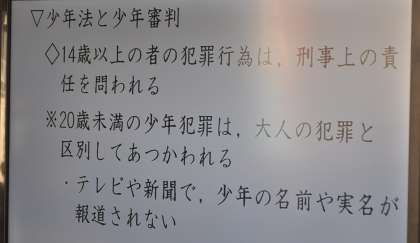 ▽少年法と少年審判
◇14歳以上の者の犯罪行為は，刑事上の責
任を問われる
※20歳未満の少年犯罪は，大人の犯罪と
区別してあつかわれる
・テレビや新聞で，少年の名前や実名が
報道されない